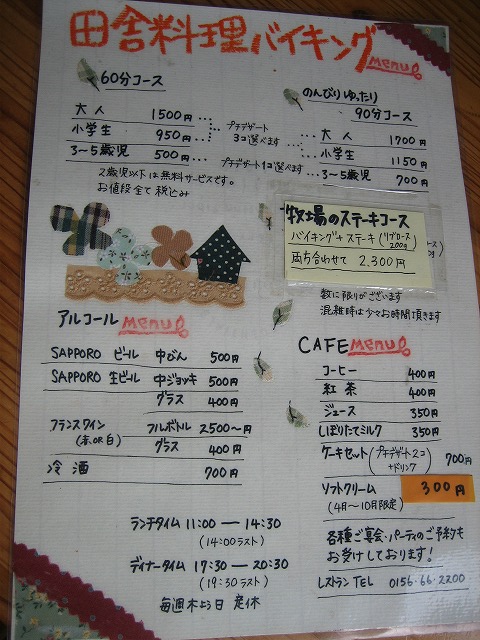 田舎料理バイキング menu
60分コース
大人 1500円
小学生 950円
プチデザート3コ選べます
3〜5歳児 500円
プチデザート1コ選べます
2歳児以下は無料サービスです。
お値段全て税込み
のんびりゆったり
90分コース
大人 1700円
小学生 1150円
3〜5歳児 700円
牧場のステーキコース
バイキング+ステーキ(リブロース200g)
両ち合わせて 2,300円
数に限りがございます
混雑時は少々お時間頂きます
アルコール menu
SAPPORO ビール 中びん 500円
SAPPORO 生ビール 中ジョッキ 500円
グラス 400円
フランスワイン(赤OR白) フルボトル 2500〜円
グラス 400円
冷酒 700円
CAFE menu
コーヒー 400円
紅茶 400円
ジュース 350円
しぼりたてミルク 350円
ケーキセット(プチデザート2コ+ドリンク) 700円
ソフトクリーム 300円
(4月〜10月限定)
ランチタイム 11:00 — 14:30
(14:00ラスト)
ディナータイム 17:30 — 20:30
(19:30ラスト)
毎週木よう日 定休
各種ご宴会・パーティのご予約も
お受けしております!
レストラン TEL 0156-66-2200